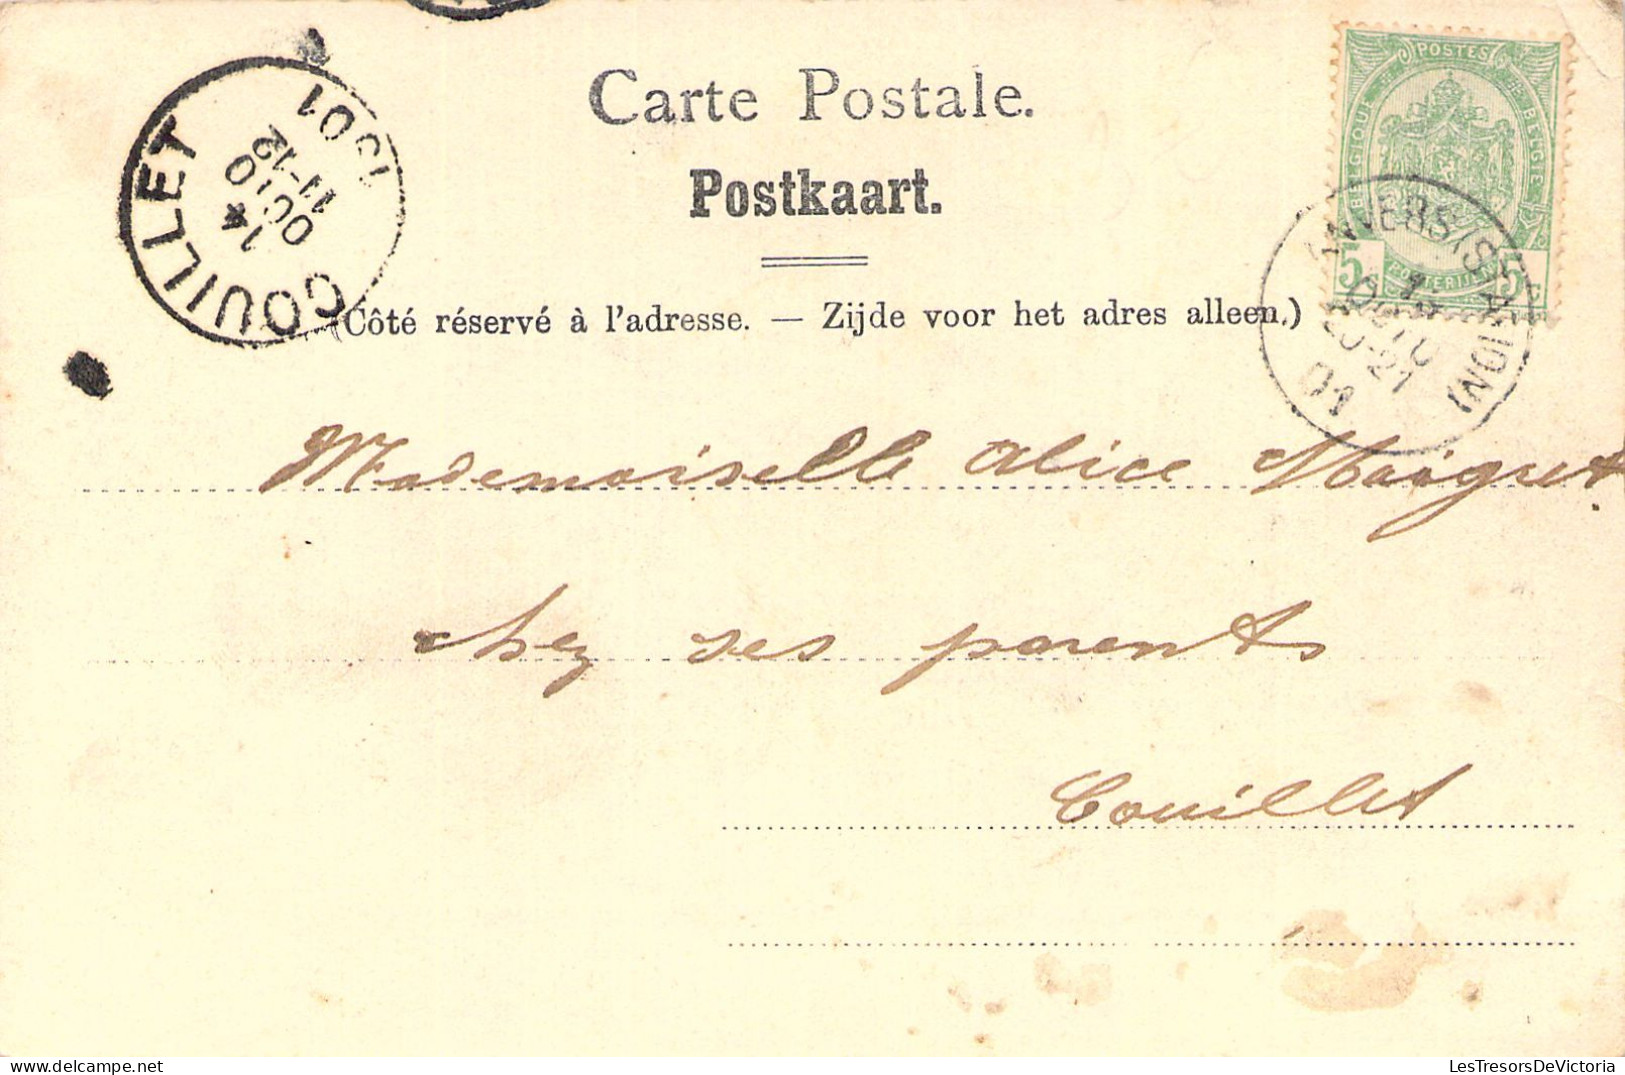 Carte Postale.
Postkaart.
(Côté réservé à l'adresse. — Zijde voor het adres alleen.)
COUILLET
14
OCT 10
11-12
1901
POSTES
BELGIQUE
BELGIË
5 POSTERIJEN 5
ANVERS (STATION)
OCT 10
20-21
01
Mademoiselle Alice Maigret
chez ses parents
Couillet
LesTresorsDeVictoria